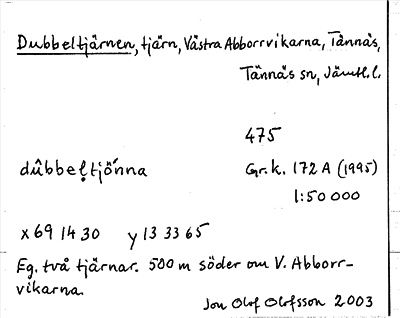 Dubbeltjärnen, tjärn, Västra Abborrvikarna, Tännäs,
Tännäs sn, Jämtl. l.
475
dúbbeḷtjö́nna Gr.k. 172 A (1995)
1:50 000
x 69 14 30 y 13 33 65
Eg. två tjärnar. 500 m söder om V. Abborr-
vikarna.
Jon Olof Olofsson 2003